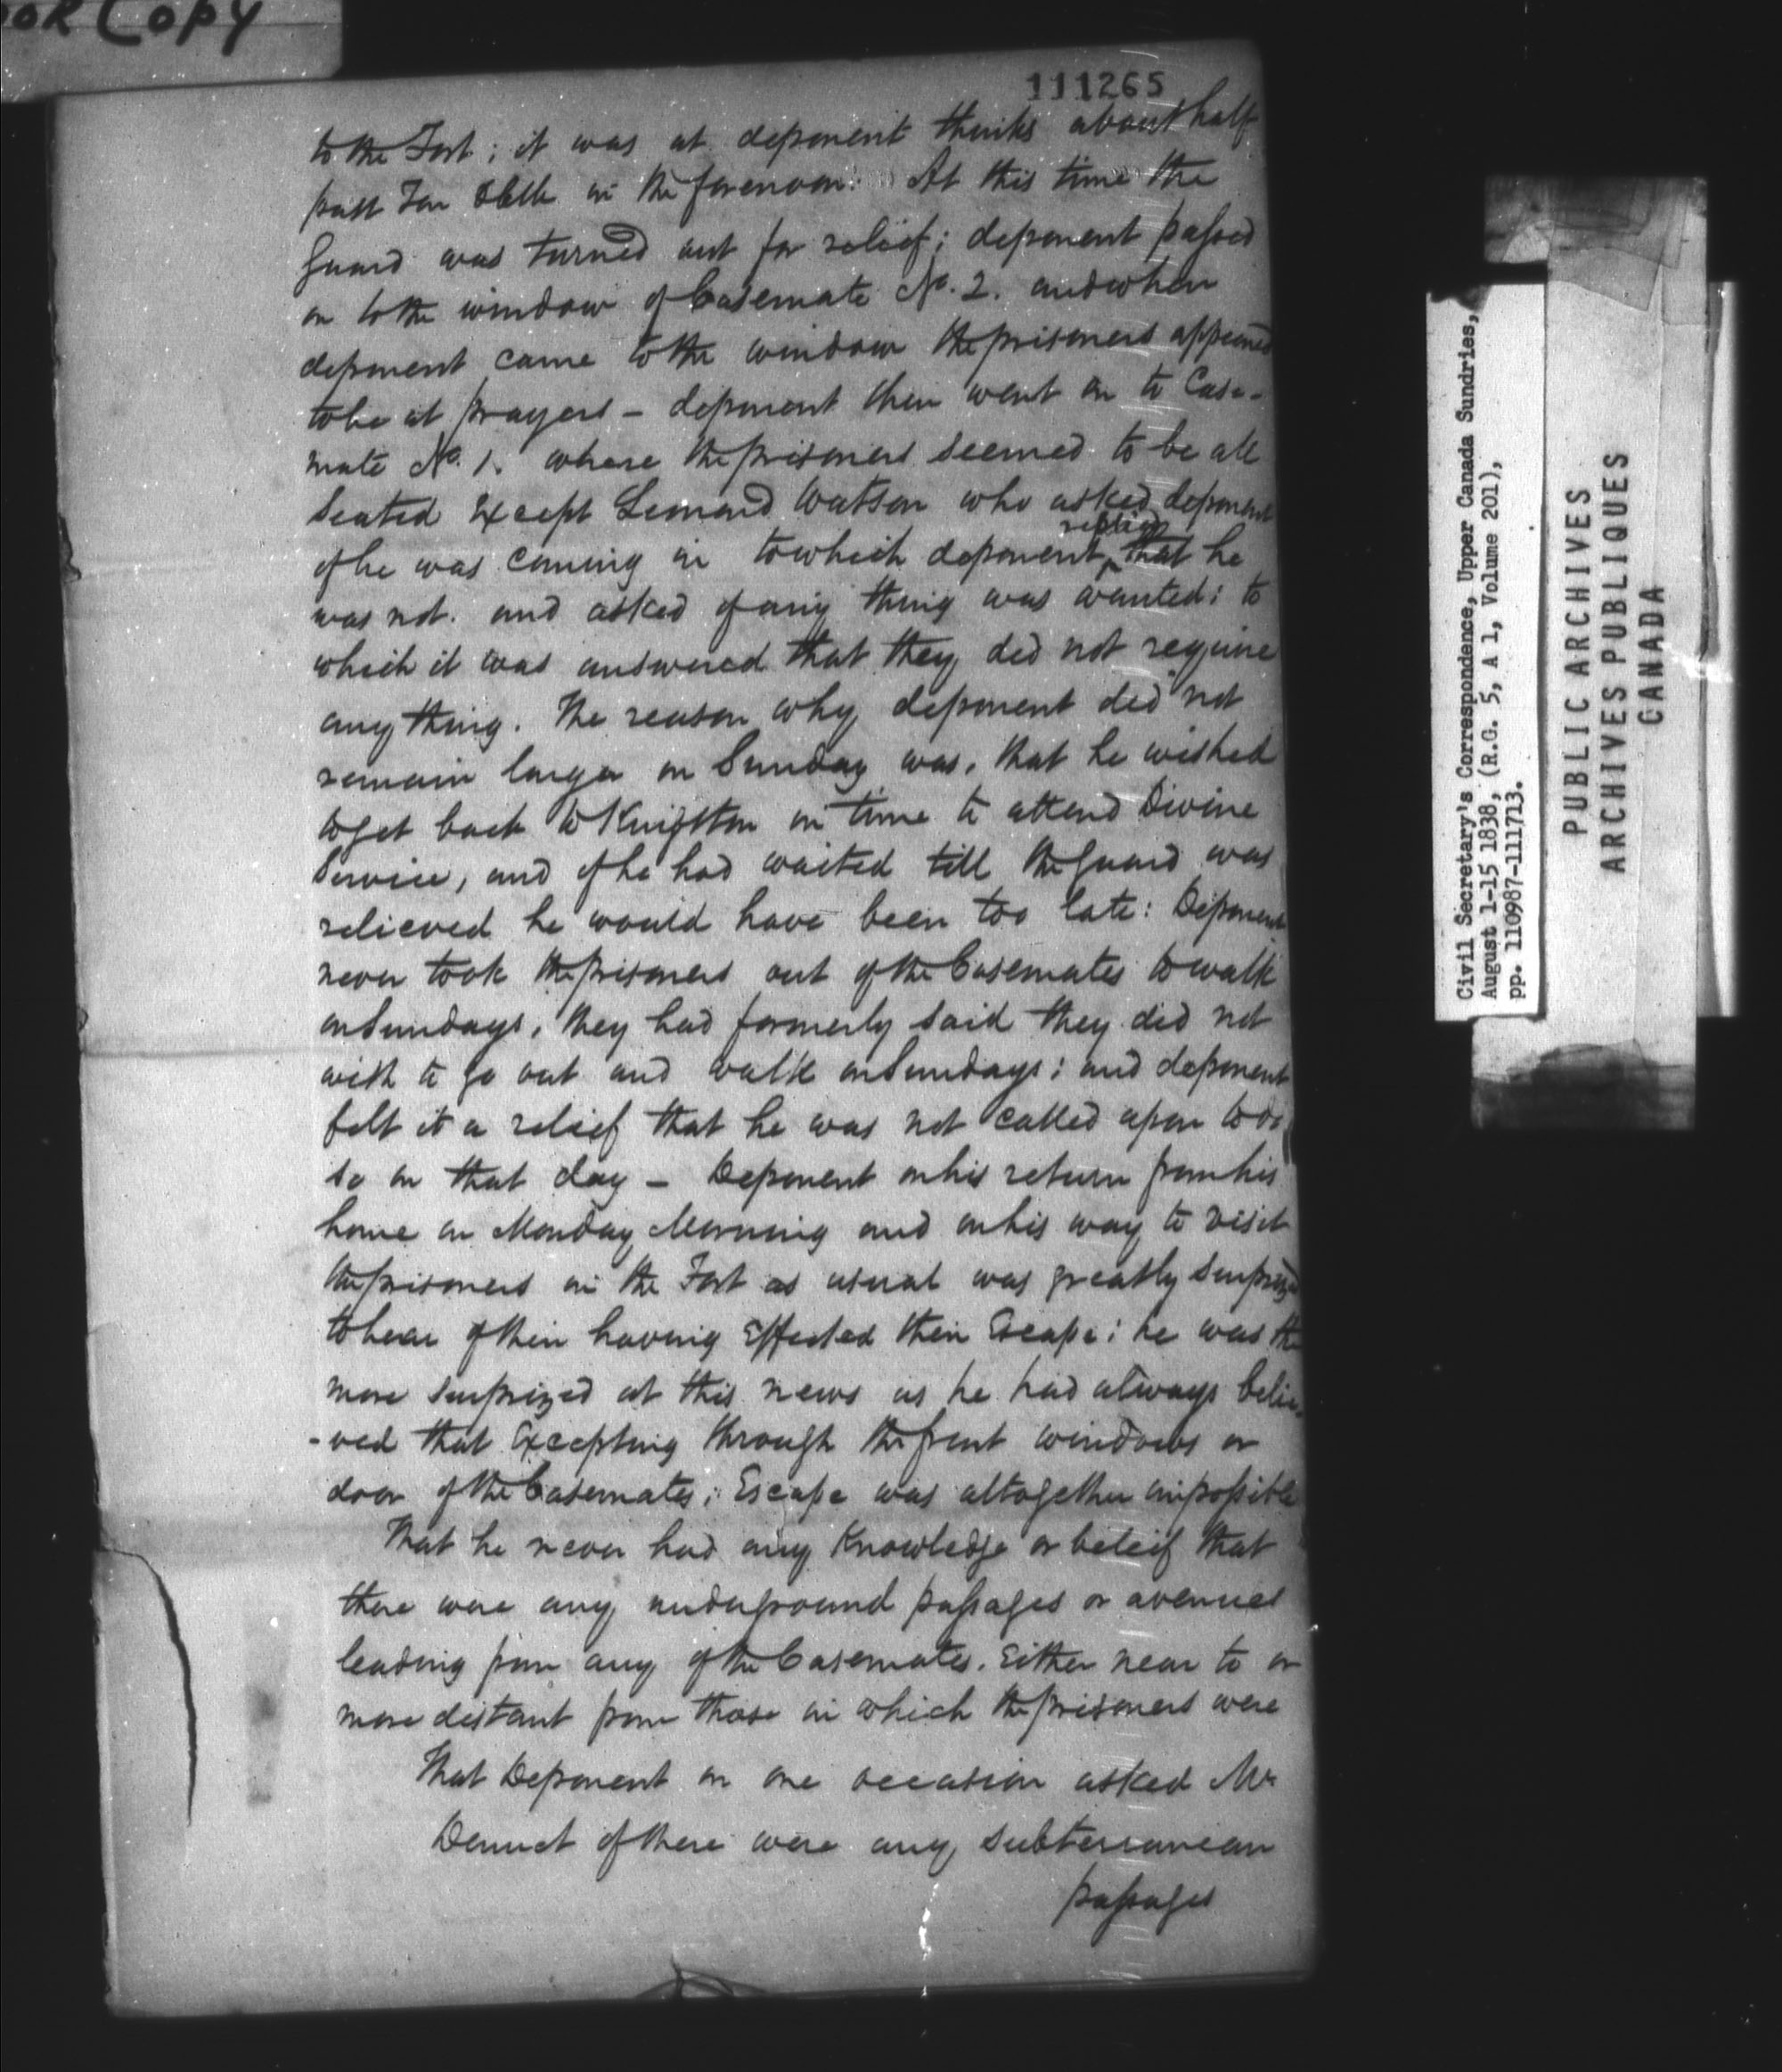 OR COPY
111265
to the Fort; it was at deponent thinks about half
past Ten in the forenoon: At this time the
Guard was turned out for relief; deponent passed
on to the window of Casemate No. 2. and when
deponent came to the window the prisoners appeared
to be at prayers – deponent then went on to Case-
mate No. 1. where the prisoners seemed to be all
seated Except Leonard Watson who asked deponent
if he was coming in to which deponent replied that he
was not. and asked if any thing was wanted: to
which it was answered that they did not require
any thing. The reason why deponent did not
remain longer on Sunday was, that he wished
to get back to Kingston in time to attend Divine
Service, and if he had waited till the Guard was
relieved he would have been too late: Deponent
never took the prisoners out of the Casemates to walk
on Sundays, they had formerly said they did not
wish to go out and walk on Sundays: and deponent
felt it a relief that he was not called upon to do
so on that day – Deponent on his return from his
home on Monday Morning and on his way to visit
the prisoners in the Fort as usual was greatly surprized
to hear of their having Effected their Escape: he was the
more surprized at this news as he had always belie-
-ved that Excepting through the front windows or
door of the Casemates; Escape was altogether impossible
That he never had any Knowledge or beleif that
there were any underground passages or avenues
leading from any of the Casemates. Either near to or
more distant from those in which the prisoners were
That Deponent on one occasion asked Mr
if there were any subterranean
passages
Civil Secretary's Correspondence, Upper Canada Sundries,
August 1-15 1838, (R.G. 5, A 1, Volume 201),
pp. 110987-111713.
PUBLIC ARCHIVES
ARCHIVES PUBLIQUES
CANADA